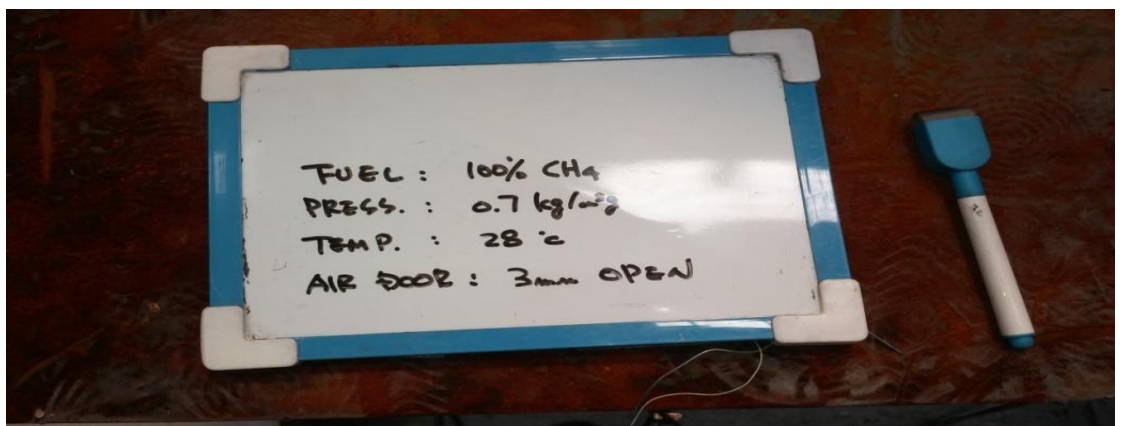 FUEL : 100% CH4
PRESS. : 0.7 kg/m²g
TEMP. : 28 °c
AIR DOOR : 3mm OPEN